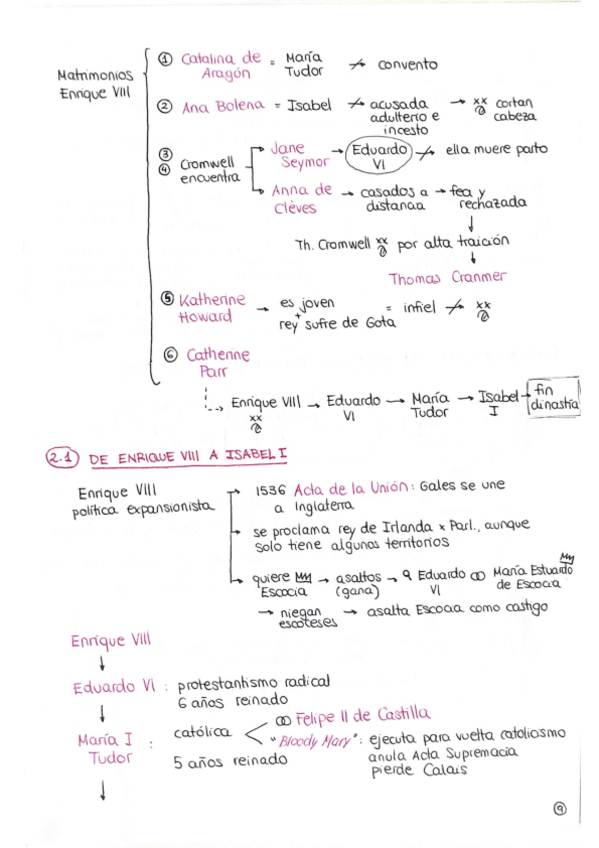 Matrimonios
Enrique VIII
① Catalina de Aragón = María Tudor → convento
② Ana Bolena = Isabel → acusada adulterio e incesto → xx cortan cabeza
③
④ Cromwell encuentra
Jane Seymor → Eduardo VI → ella muere parto
Anna de Clèves → casados a distancia → fea y rechazada
↓
Th. Cromwell xx por alta traición
↓
Thomas Cranmer
⑤ Katherine Howard → es joven + rey sufre de Gota = infiel → xx
⑥ Catherine Parr
Enrique VIII xx → Eduardo VI → María Tudor → Isabel I → fin dinastía
2.1 DE ENRIQUE VIII A ISABEL I
Enrique VIII
política expansionista
→ 1536 Acta de la Unión: Gales se une
a Inglaterra
→ se proclama rey de Irlanda x Parl., aunque
solo tiene algunos territorios
→ quiere Escocia → asaltos (gana) → Eduardo VI ∞ María Estuardo de Escocia
→ niegan escoteses → asalta Escocia como castigo
Enrique VIII
↓
Eduardo VI : protestantismo radical
6 años reinado
↓
María I Tudor :
católica
∞ Felipe II de Castilla
"Bloody Mary": ejecuta para vuelta catolicismo
anula Acta Supremacía
pierde Calais
5 años reinado
↓
9